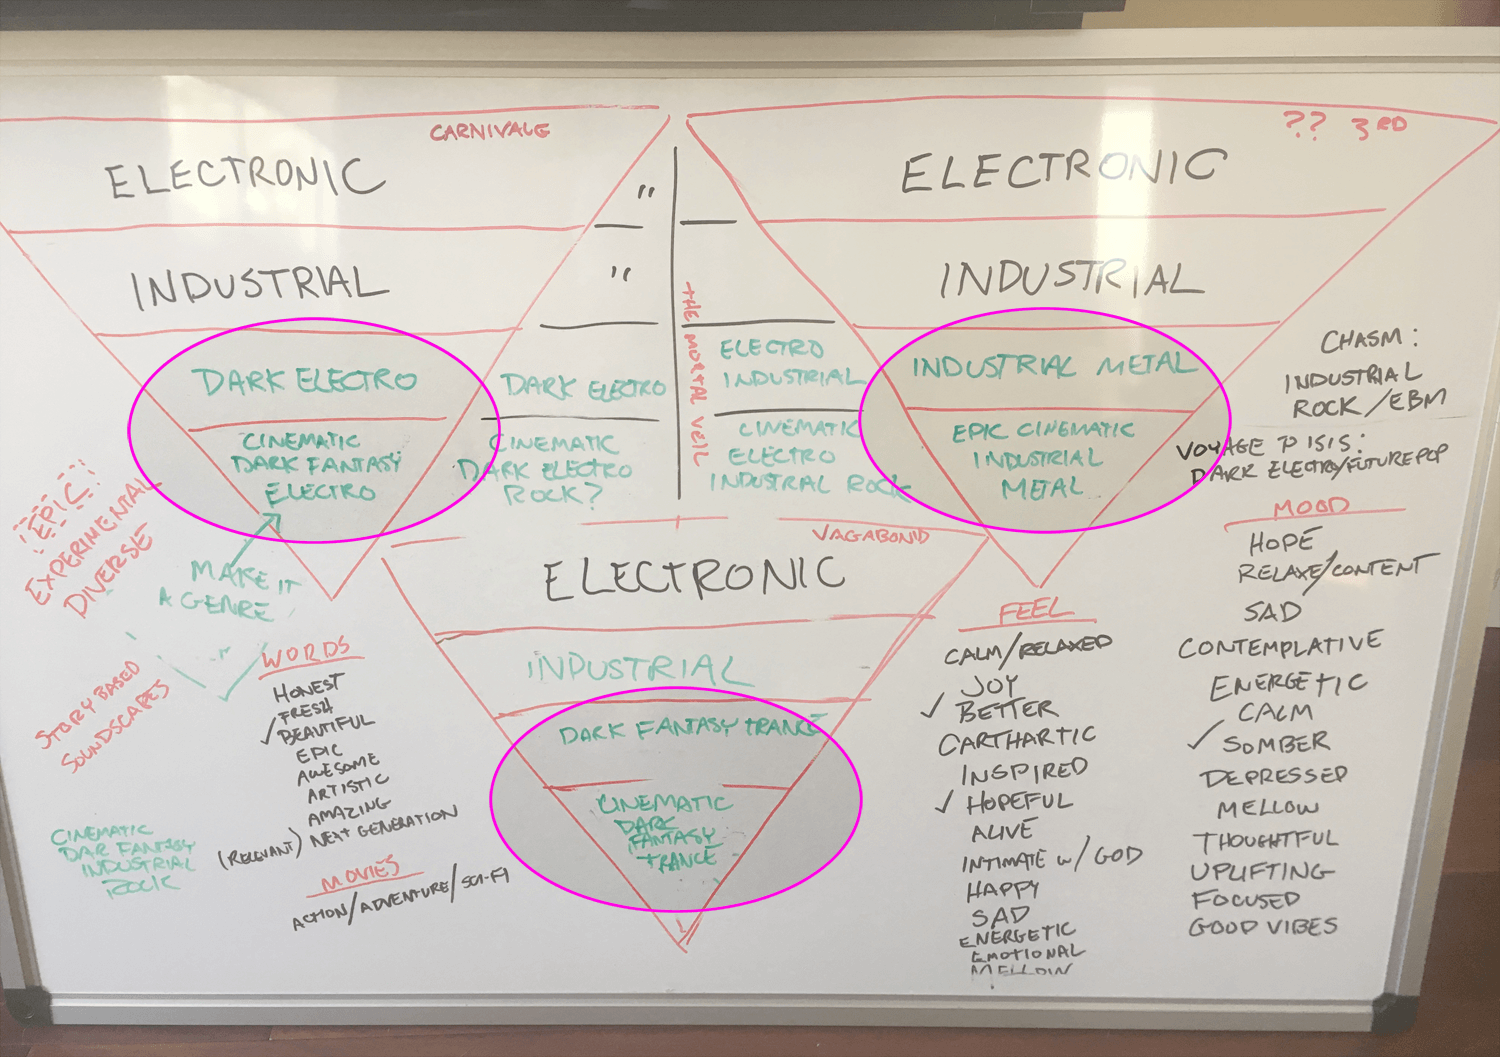 CARNIVALE
ELECTRONIC
"
INDUSTRIAL
"
DARK ELECTRO
CINEMATIC
DARK FANTASY
ELECTRO
DARK ELECTRO
CINEMATIC
DARK ELECTRO
ROCK?
THE MORTAL VEIL
ELECTRO
INDUSTRIAL
CINEMATIC
ELECTRO
INDUSTRAL ROCK
?? 3RD
ELECTRONIC
INDUSTRIAL
INDUSTRIAL METAL
EPIC CINEMATIC
INDUSTRIAL
METAL
CHASM:
INDUSTRIAL
ROCK/EBM
VOYAGE TO ISIS:
DARK ELECTRO/FUTUREPOP
EPIC
EXPERIMENTAL
DIVERSE
MAKE IT
A GENRE
STORY BASED
SOUNDSCAPES
CINEMATIC
DAR FANTASY
INDUSTRIAL
ROCK
WORDS
HONEST
FRESH
✓ BEAUTIFUL
EPIC
AWESOME
ARTISTIC
AMAZING
(RELEVANT) NEXT GENERATION
MOVIES
ACTION/ADVENTURE/SCI-FI
VAGABOND
ELECTRONIC
INDUSTRIAL
DARK FANTASY TRANCE
CINEMATIC
DARK
FANTASY
TRANCE
FEEL
CALM/RELAXED
JOY
✓ BETTER
CARTHARTIC
INSPIRED
✓ HOPEFUL
ALIVE
INTIMATE W/ GOD
HAPPY
SAD
ENERGETIC
EMOTIONAL
MOOD
HOPE
RELAXE/CONTENT
SAD
CONTEMPLATIVE
ENERGETIC
CALM
✓ SOMBER
DEPRESSED
MELLOW
THOUGHTFUL
UPLIFTING
FOCUSED
GOOD VIBES